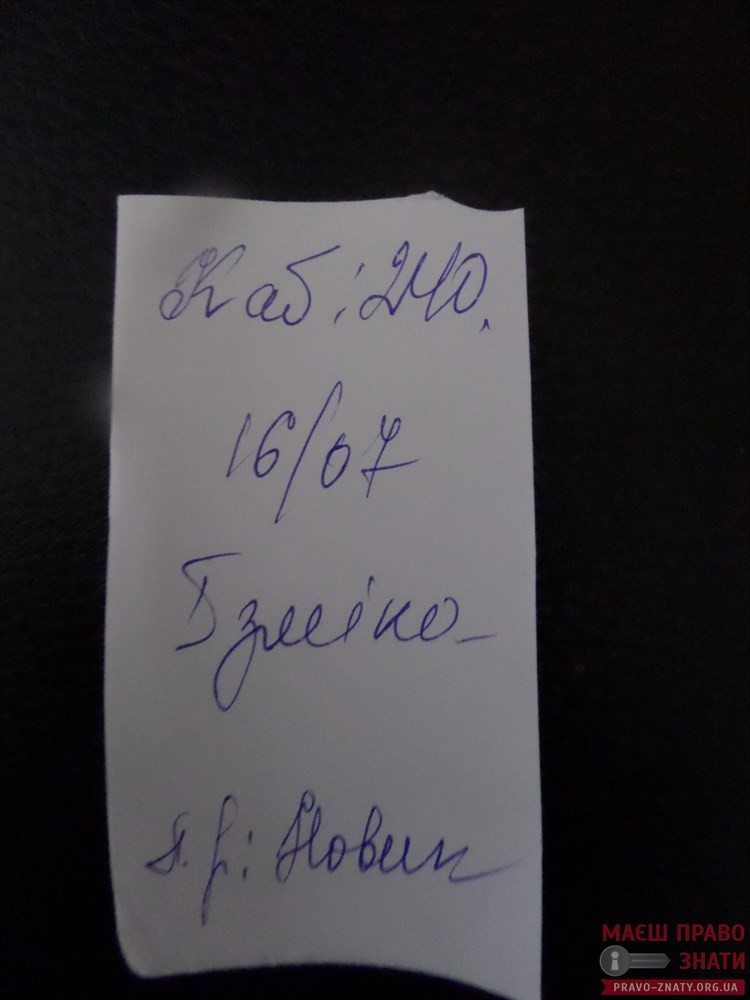 Каб: 240.
16/07
І зміно-
п. р: Новик
МАЄШ ПРАВО
ЗНАТИ
PRAVO-ZNATY.ORG.UA